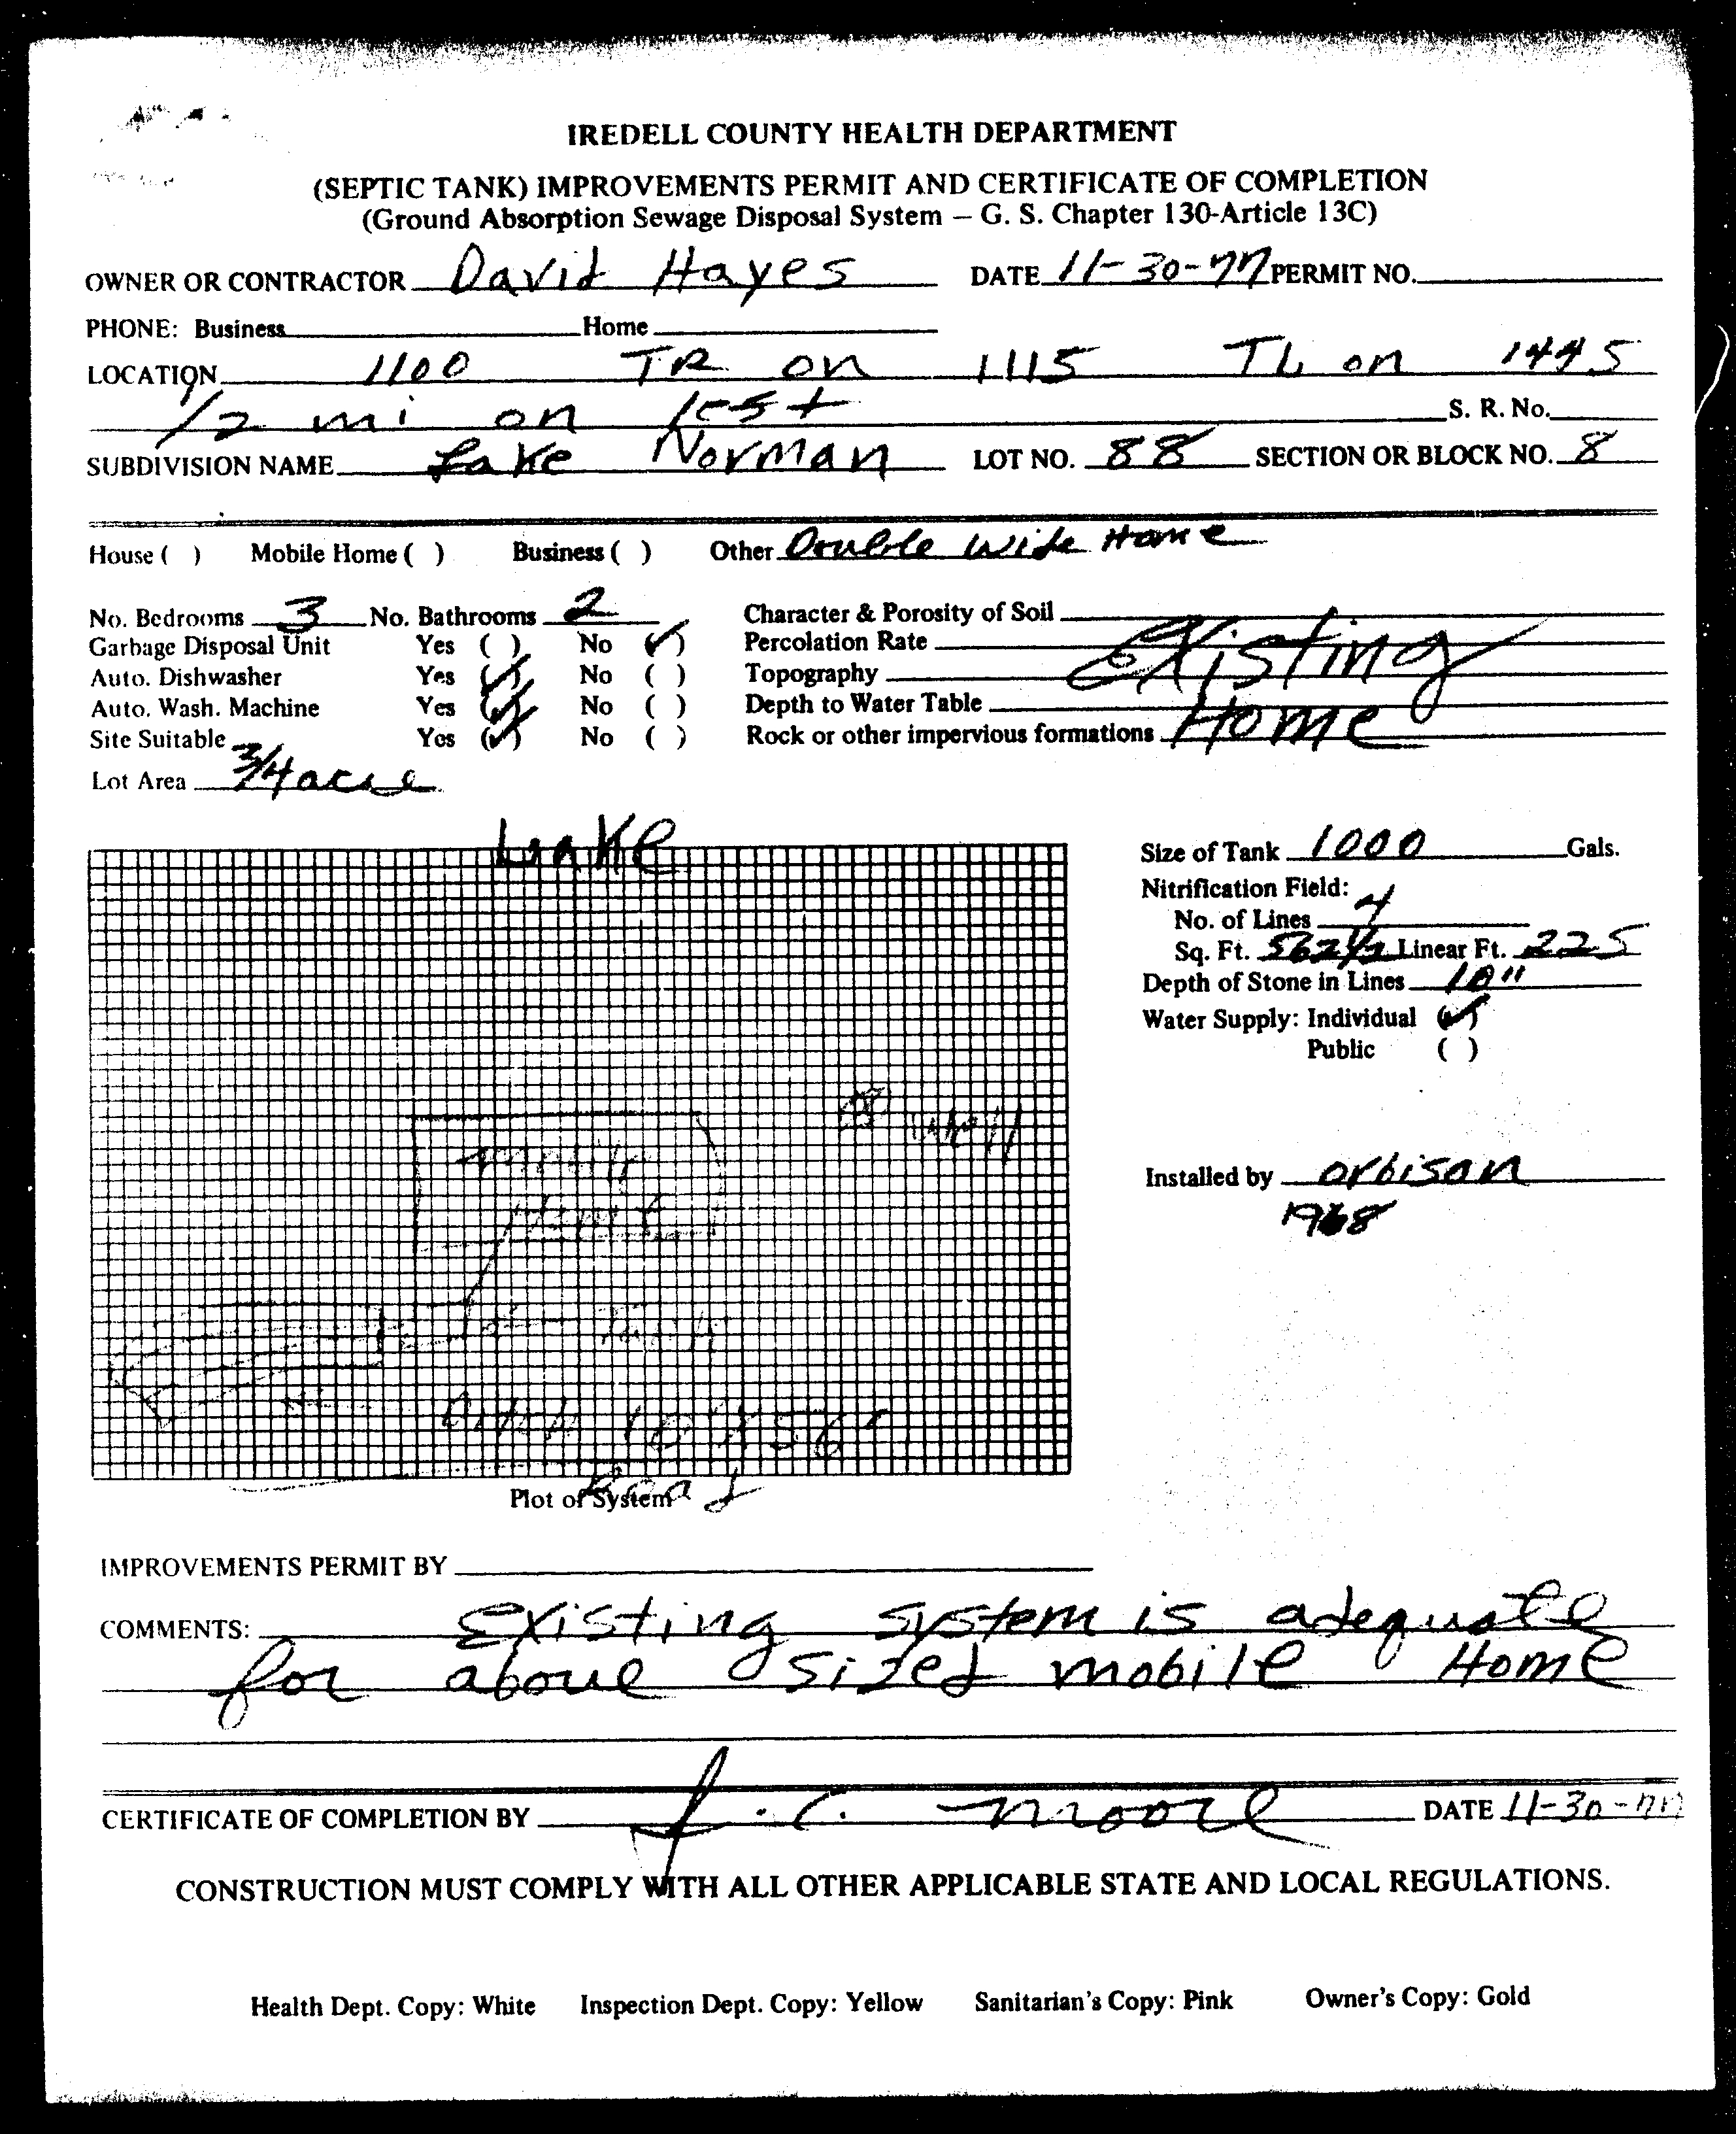 IREDELL COUNTY HEALTH DEPARTMENT
(SEPTIC TANK) IMPROVEMENTS PERMIT AND CERTIFICATE OF COMPLETION
(Ground Absorption Sewage Disposal System – G. S. Chapter 130-Article 13C)
OWNER OR CONTRACTOR David Hayes DATE 11-30-77 PERMIT NO.
PHONE: Business Home
LOCATION 1100 TR on 1115 TL on 1445
1/2 mi on left S. R. No.
SUBDIVISION NAME Lake Norman LOT NO. 88 SECTION OR BLOCK NO. 8
House ( ) Mobile Home ( ) Business ( ) Other Double Wide Home
No. Bedrooms 3 No. Bathrooms 2 Character & Porosity of Soil
Garbage Disposal Unit Yes ( ) No (✓) Percolation Rate Existing
Auto. Dishwasher Yes (✓) No ( ) Topography
Auto. Wash. Machine Yes (✓) No ( ) Depth to Water Table
Site Suitable Yes (✓) No ( ) Rock or other impervious formations Home
Lot Area 3/4 acre
Lake
Size of Tank 1000 Gals.
Nitrification Field:
No. of Lines 4
Sq. Ft. 562 1/2 Linear Ft. 225
Depth of Stone in Lines 10"
Water Supply: Individual (✓)
Public ( )
well
mobile
Home
Installed by orbison
1968
Road
Plot of System
IMPROVEMENTS PERMIT BY
COMMENTS: Existing system is adequate
for above sized mobile Home
CERTIFICATE OF COMPLETION BY J. C. Moore DATE 11-30-77
CONSTRUCTION MUST COMPLY WITH ALL OTHER APPLICABLE STATE AND LOCAL REGULATIONS.
Health Dept. Copy: White Inspection Dept. Copy: Yellow Sanitarian's Copy: Pink Owner's Copy: Gold